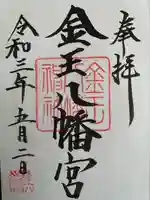 奉拝
金王八幡宮
令和三年五月二日